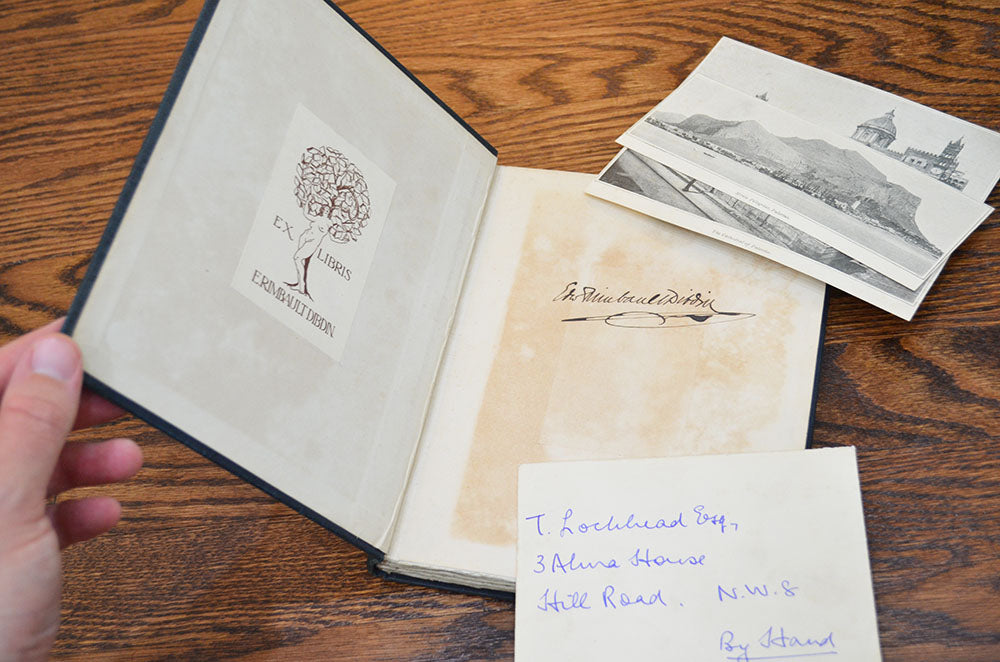 EX LIBRIS
E. RIMBAULT DIBDIN.
Edw Rimbault Dibdin
The Cathedral of Palermo
T. Lochhead Esq.,
3 Alma House
Hill Road. N.W.8
By Hand